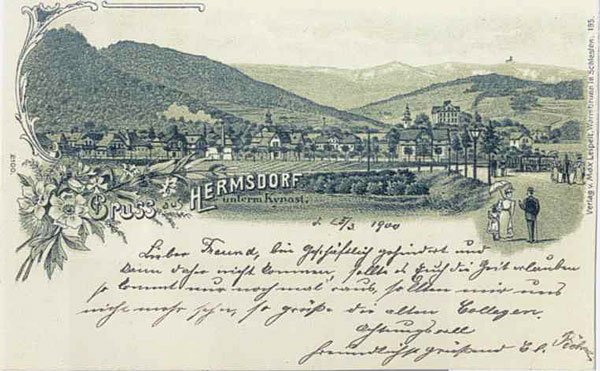 Gruss aus HERMSDORF
unterm Kynast.
Verlag v. Max Leipelt, Warmbrunn in Schlesien. 195.
1900
Lieber Freund, bin Geschäftlich gehindert und
kann daher nicht kommen, sollte es Euch die Zeit erlauben
so kommt nur noch mal raus, sollten wir uns
nicht mehr sehn, so grüße die alten Collegen.
Achtungsvoll
freundlichst grüßend